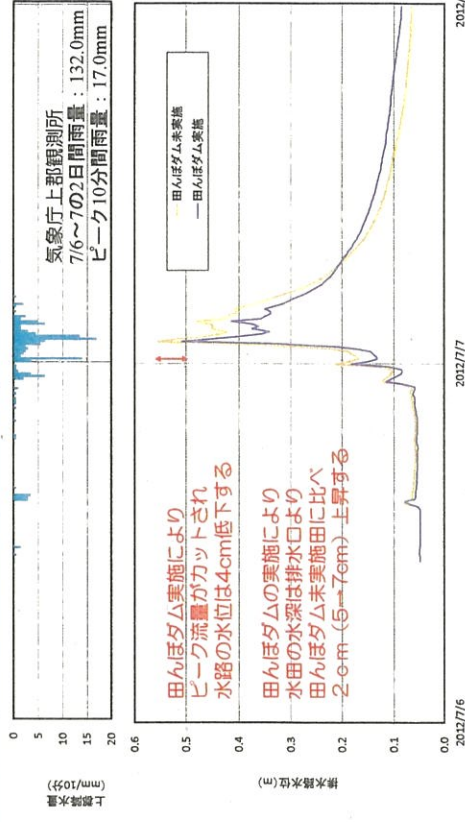 上郡降水量
(mm/10分)
0
5
10
15
20
気象庁上郡観測所
7/6～7の2日間雨量：132.0mm
ピーク10分間雨量：17.0mm
排水路水位(m)
0.6
0.5
0.4
0.3
0.2
0.1
田んぼダム未実施
田んぼダム実施
田んぼダム実施により
ピーク流量がカットされ
水路の水位は4cm低下する
田んぼダムの実施により
水田の水深は排水口より
田んぼダム未実施田に比べ
2cm（5→7cm）上昇する
2012/7/6
2012/7/7